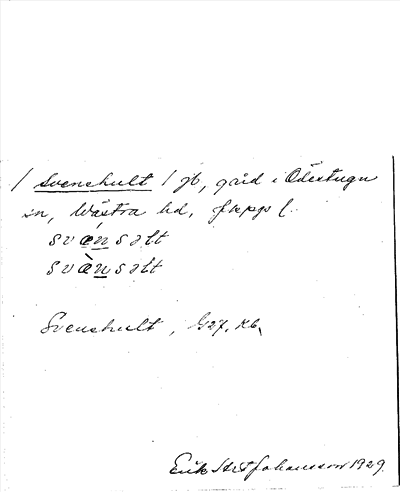 / Svenshult / jb, gård i Ödestugu
sn, Wästra hd,
svænsalt
svænsalt
Svenshult, G27. Kb.
Erik Johansson 1929.